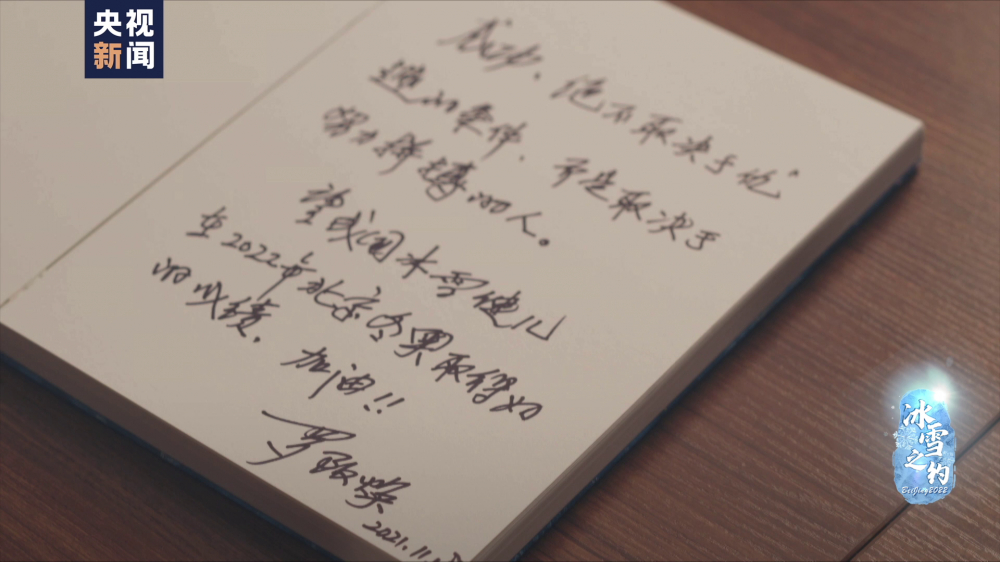 央视
新闻
成功、绝不取决于优
越的条件、而是取决于
努力拼搏的人。
望我国冰雪健儿
在2022年北京冬奥取得好
的成绩，加油!!
罗致焕
2021.11.
冰雪之约
Beijing2022